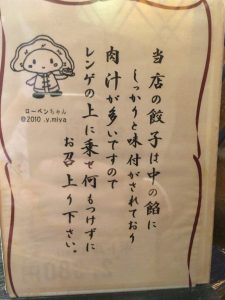 当店の餃子は中の餡に
しっかりと味付がされており
肉汁が多いですので
レンゲの上に乗せ何もつけずに
お召上り下さい。
ローペンちゃん
©2010 .y.miya